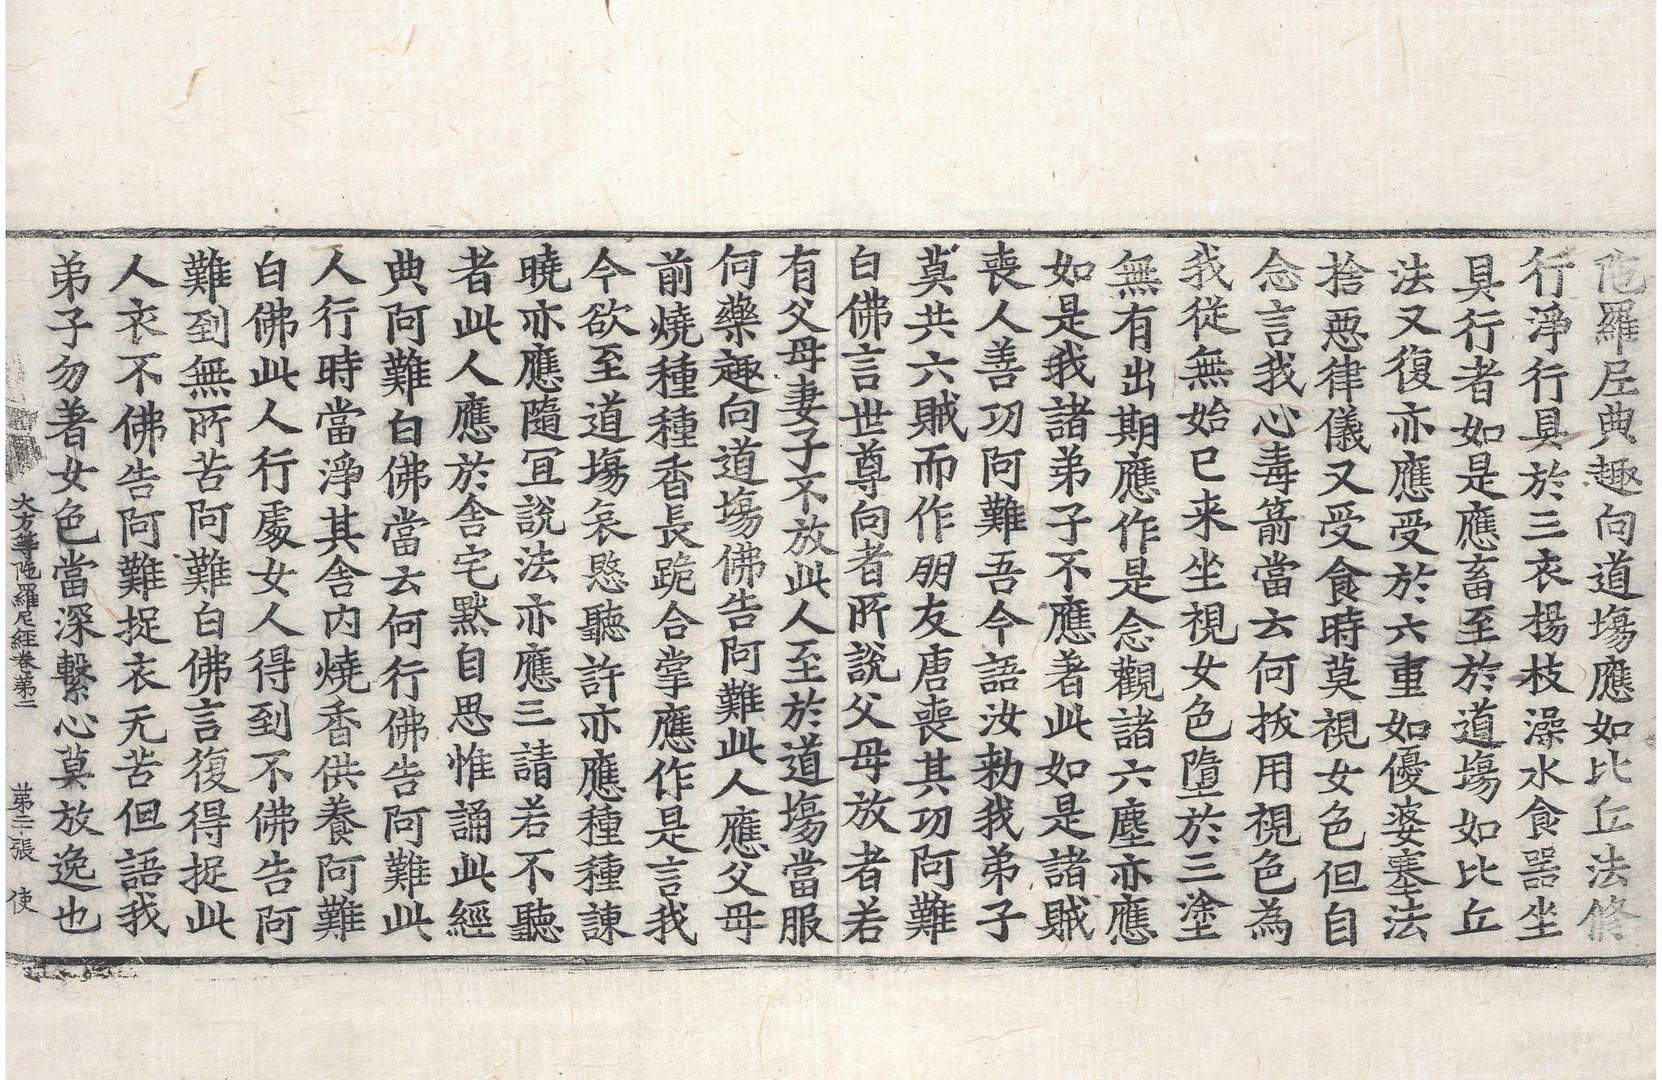 陁羅尼典趣向道場應如比丘法修
行淨行具於三衣楊枝澡水食器坐
具行者如是應畜至於道場如比丘
法又復亦應受於六重如優婆塞法
捨惡律儀又受食時莫視女色但自
念言我心毒箭當云何拔用視色為
我從無始已来坐視女色墮於三塗
無有出期應作是念觀諸六塵亦應
如是我諸弟子不應著此如是諸賊
喪人善功阿難吾今語汝勑我弟子
莫共六賊而作朋友唐喪其功阿難
白佛言世尊向者所說父母放者若
有父母妻子不放此人至於道場當服
何藥趣向道場佛告阿難此人應父母
前燒種種香長跪合掌應作是言我
今欲至道場哀愍聽許亦應種種諫
曉亦應隨宜說法亦應三請若不聽
者此人應於舍宅黙自思惟誦此經
典阿難白佛當云何行佛告阿難此
人行時當淨其舍内燒香供養阿難
白佛此人行處女人得到不佛告阿
難到無所苦阿難白佛言復得捉此
人衣不佛告阿難捉衣无苦但語我
弟子勿著女色當深繫心莫放逸也
大方等陁羅尼經卷第二　第二張　使